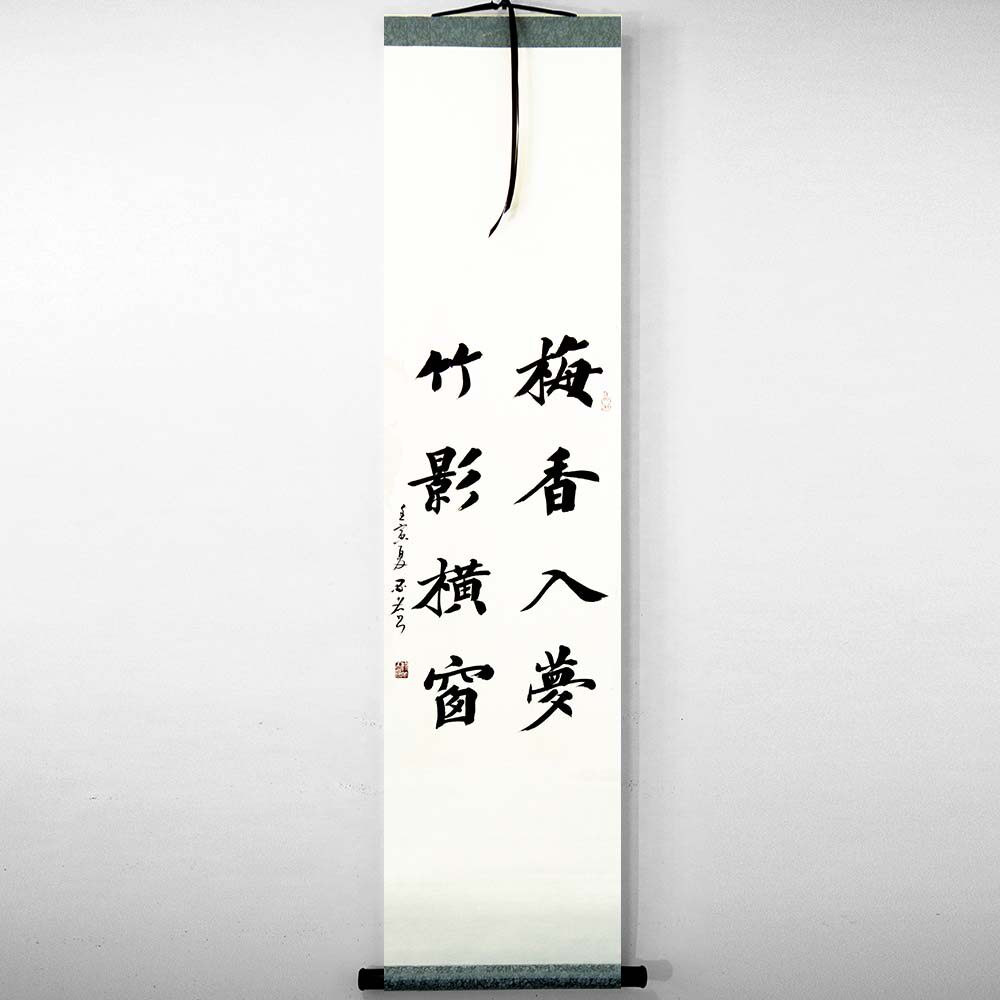 梅香入夢
竹影橫窗
壬寅夏